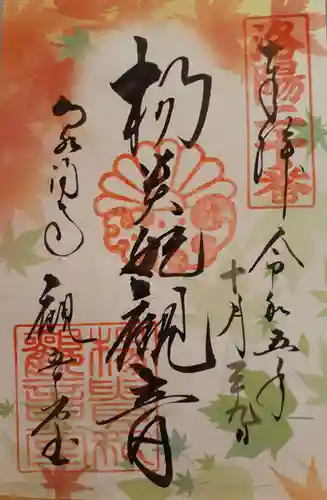 洛陽二十番
奉拝
令和五年
十月
楊貴妃観音
泉涌寺
観音堂
楊貴妃
観音堂